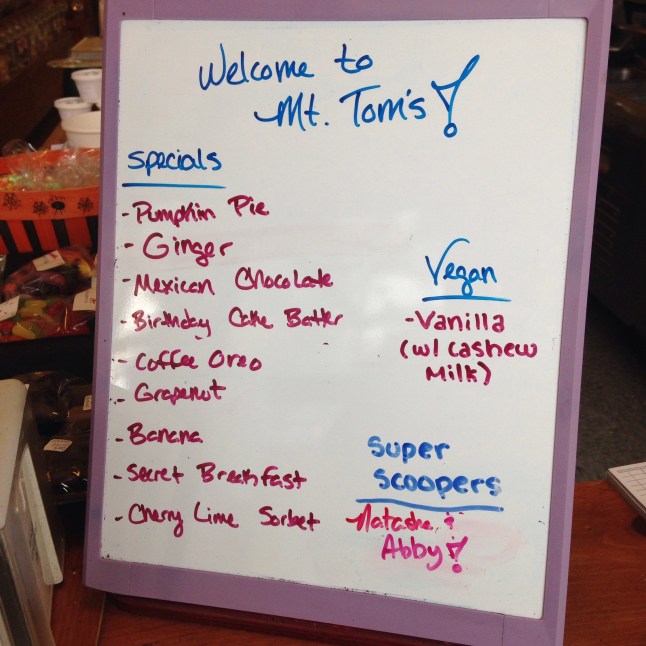 Welcome to
Mt. Tom's!
Specials
- Pumpkin Pie
- Ginger
- Mexican Chocolate
- Birthday Cake Batter
- Coffee Oreo
- Grapenut
- Banana
- Secret Breakfast
- Cherry Lime Sorbet
Vegan
- Vanilla
(w/ cashew
Milk)
Super
Scoopers
Natasha &
Abby!